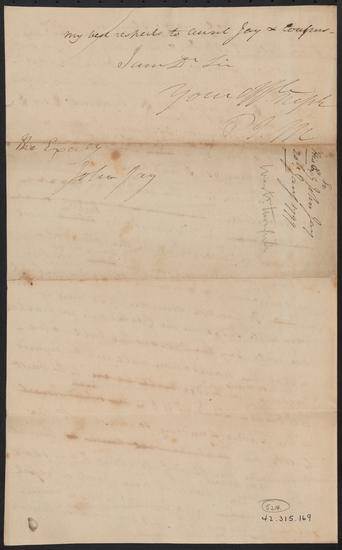 my best respects to aunt Jay & Cousins—
I am Dr. Sir
Your Aff. Neph
P. J. M
His Excy
John Jay
To
John Jay
1799
524
42.315.169